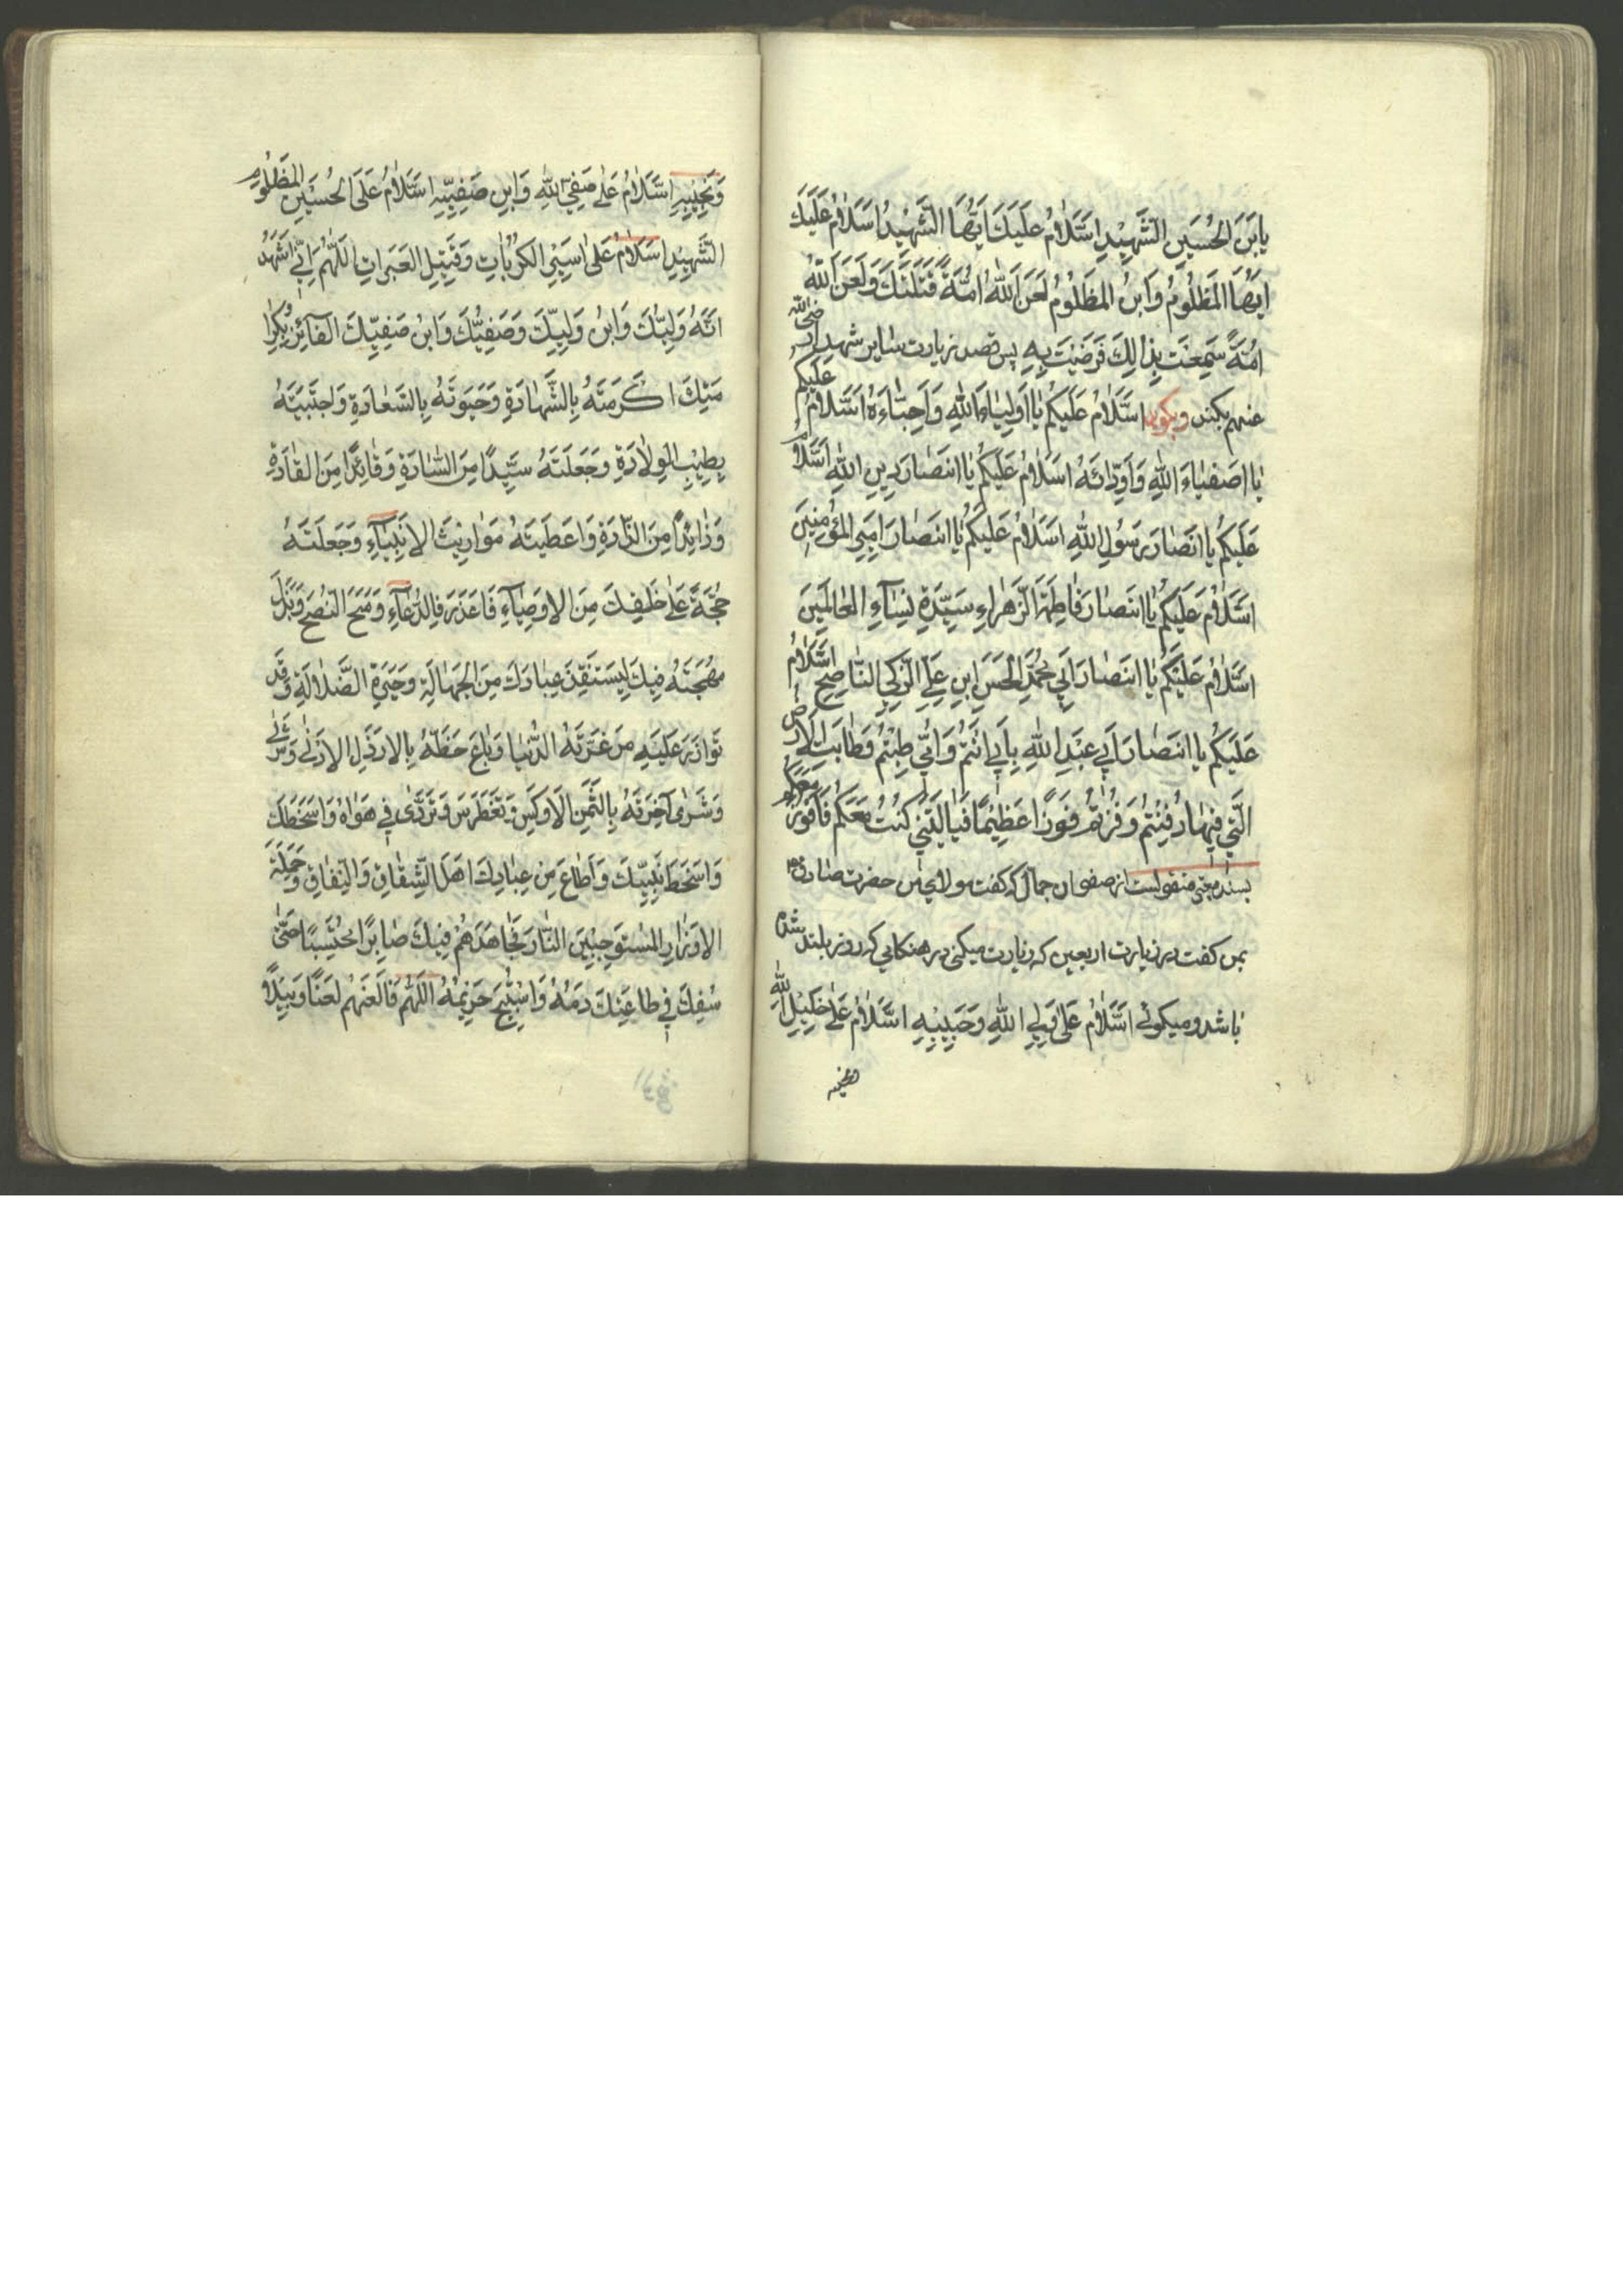 يابنَ الحُسَينِ الشَّهِيدِ اسَّلامُ عَلَيكَ ايُّهَا الشَّهِيدُ اسَّلامُ عَلَيكَ
ايهَا المَظلُومُ وَابنُ المَظلُومُ لَعَنَ اللهُ امَّةً قَتَلَتكَ وَلَعَنَ اللهُ
امَّةً سَمِعَت بِذالِكَ فَرَضِيَت بِهِ پس قصد زيارت ساير شهدا رضى الله
عنهم بكند و بگويد اسَّلامُ عَلَيكُم يا اَولِياءَ اللهِ وَاَحِبّاءَهُ اسَّلامُ عليكم
يا اصَفياءَ اللهِ وَاَوِدّائَهُ اسَلامُ عَلَيكُم يا انصَارَ دينِ اللهِ اسَّلامُ
عَلَيكُم يا انصَارَ رَسُولِ اللهِ اسَلامُ عَلَيكُم يا انصارَ اميرِ المُؤمِنينَ
اسَّلامُ عَلَيكُم يا انصارَ فاطِمَةَ الزَهراءِ سَيِّدَةِ نِساءِ العالَمينَ
اسَّلامُ عَلَيكُم يا انصارَ اَبي مُحَمَّدِ الحَسَنِ ابنِ عَلِيِّ الزَكِيِّ النّاصِحِ اسَّلامُ
عَلَيكُم يا انصارَ اَبي عَبدِ اللهِ بِاَبي انتُم وَ امّي طِبتُم وَطابَتِ الارض
الَّتي فيها دُفِنتُم وَفُزتُم فَوزًا عَظيمًا فَيا لَيتَني كُنتُ مَعَكُم فَاَفُوزَ مَعَكُم
بسند معتبر منقولست از صفوان جمال كه كفت مولاى من حضرت صادق ع م
بمن كفت در زيارت اربعين كه زيارت ميكنى در هنكامى كه روز بلند شده
باشد و ميكوئى اسَّلامُ عَلى وَلِيِّ اللهِ وَحَبيبِهِ اسَّلامُ عَلى خَليلِ الله
ونجيبه
وَنَجيبِهِ اسَّلامُ عَلى صَفِيِّ اللهِ وَابنِ صَفِيِّهِ اسَّلامُ عَلَى الحُسَينِ المَظلُومِ
الشَّهيدِ اسَلامُ عَلى اَسيرِ الكُرُباتِ وَقَتيلِ العَبَراتِ اللّهُمَّ اِنّي اشهَدُ
انَّهُ وَلِيُّكَ وَابنُ وَلِيِّكَ وَصَفِيُّكَ وَابنُ صَفِيِّكَ الفآئِزُ بِكَرا
مَتِكَ اكرَمتَهُ بِالشَّهادَةِ وَحَبَوتَهُ بِالسَّعادَةِ وَاجتَبَيتَهُ
بِطيبِ الوِلادَةِ وَجَعَلتَهُ سَيِّدًا مِنَ السّادَةِ وَقائِدًا مِنَ القادَةِ
وَذائِدًا مِنَ الذّادَةِ وَاعطَيتَهُ مَواريثَ الانبِيآءِ وَجَعَلتَهُ
حُجَّةً عَلى خَلقِكَ مِنَ الاوصِيآءِ فَاعذَرَ فِي الدُّعآءِ وَمَنَحَ النُّصحَ وَبَذَلَ
مُهجَتَهُ فيكَ لِيَستَنقِذَ عِبادَكَ مِنَ الجَهالَةِ وَحَيرَةِ الضَّلالَةِ وَقَد
تَوازَرَ عَلَيهِ مَن غَرَّتهُ الدُّنيا وَباعَ حَظَّهُ بِالارذَلِ الادنى وَشَرى
وَشَرى آخِرَتَهُ بِالثَّمَنِ الاوكَسِ وَتَغَطرَسَ وَتَرَدّى في هَواهُ وَاسخَطَكَ
وَاسخَطَ نَبِيَّكَ وَاَطاعَ مِن عِبادِكَ اهلَ الشِّقاقِ وَالنِّفاقِ وَحَمَلَةَ
الاوزارِ المُستَوجِبينَ النّارَ فَجاهَدَهُم فيكَ صابِرًا مُحتَسِبًا حَتّى
سُفِكَ في طاعَتِكَ دَمُهُ وَاستُبيحَ حَريمُهُ اللّهُمَّ فَالعَنهُم لَعنًا وَبيلاً